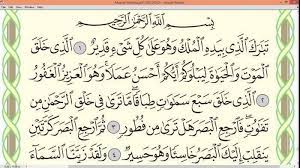 بِسْمِ اللَّهِ الرَّحْمَٰنِ الرَّحِيمِ
تَبَارَكَ الَّذِي بِيَدِهِ الْمُلْكُ وَهُوَ عَلَىٰ كُلِّ شَيْءٍ قَدِيرٌ ١ الَّذِي خَلَقَ
الْمَوْتَ وَالْحَيَاةَ لِيَبْلُوَكُمْ أَيُّكُمْ أَحْسَنُ عَمَلًا وَهُوَ الْعَزِيزُ الْغَفُورُ
٢ الَّذِي خَلَقَ سَبْعَ سَمَاوَاتٍ طِبَاقًا مَّا تَرَىٰ فِي خَلْقِ الرَّحْمَٰنِ مِن
تَفَاوُتٍ فَارْجِعِ الْبَصَرَ هَلْ تَرَىٰ مِن فُطُورٍ ٣ ثُمَّ ارْجِعِ الْبَصَرَ كَرَّتَيْنِ
يَنقَلِبْ إِلَيْكَ الْبَصَرُ خَاسِئًا وَهُوَ حَسِيرٌ ٤ وَلَقَدْ زَيَّنَّا السَّمَاءَ